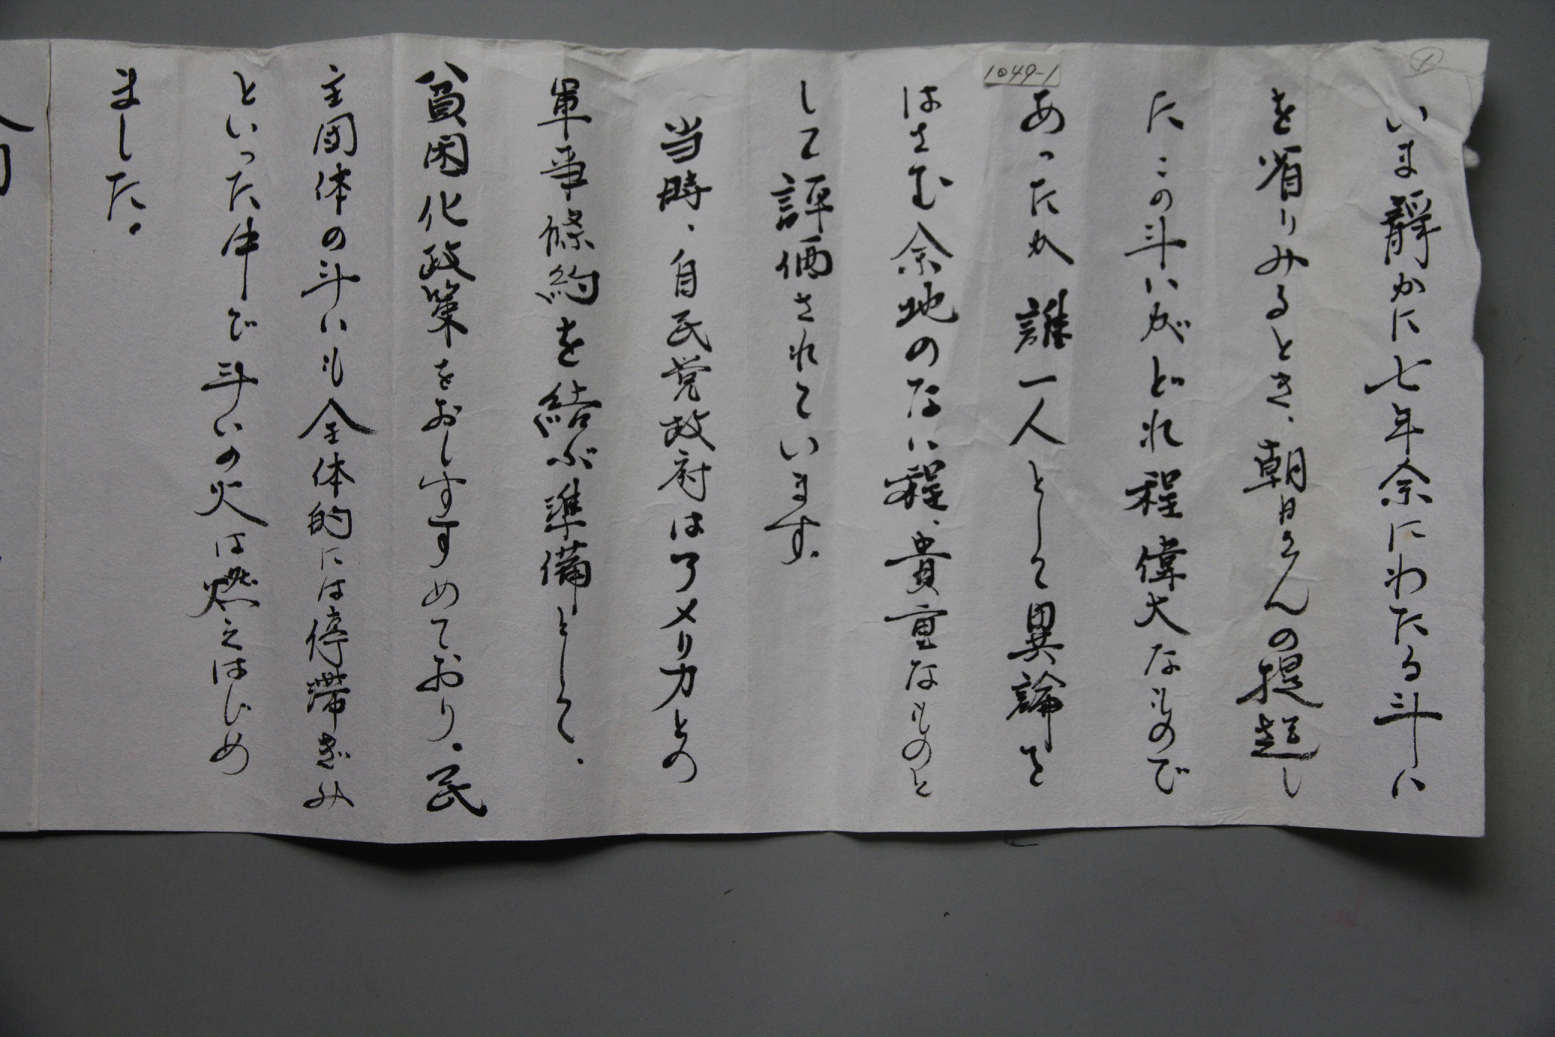 1049-1
いま静かに七年余にわたる斗い
を省りみるとき、朝日さんの提起し
たこの斗いがどれ程偉大なもので
あったか誰一人として異論を
はさむ余地のない程、貴重なものと
して評価されています。
当時、自民党政府はアメリカとの
軍事條約を結ぶ準備として、
貧困化政策をおしすすめており、民
主団体の斗いも全体的には停滞ぎみ
といった中で斗いの火は燃えはじめ
ました。